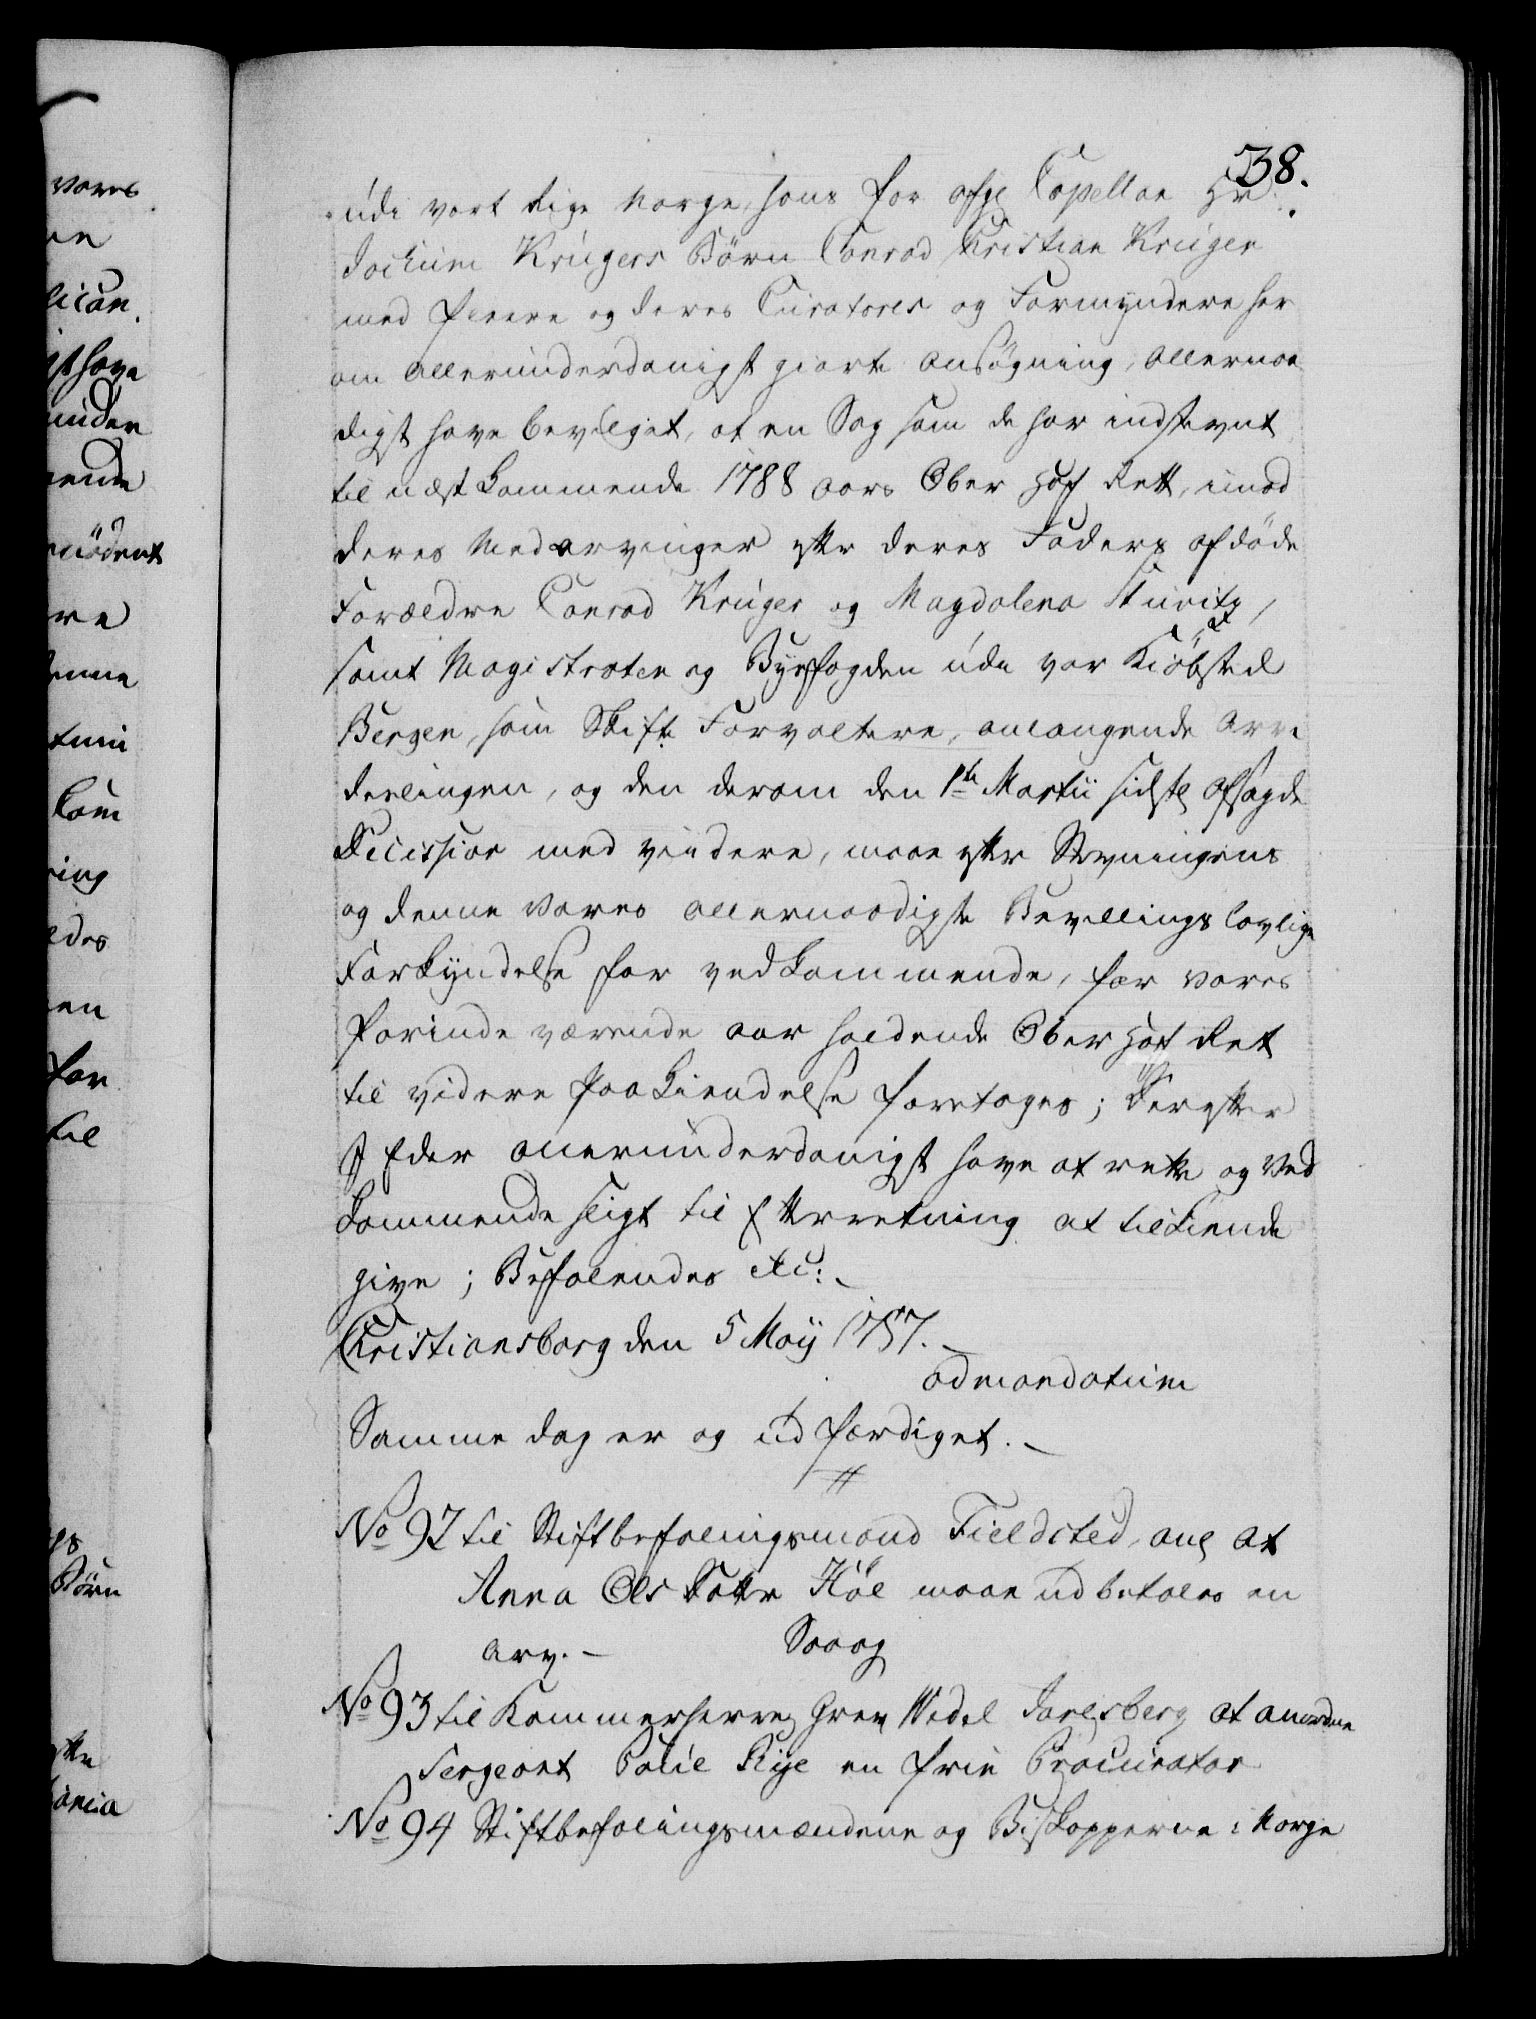 38.
udi vort Rige Norge, hans for afg. Capellan Hr.
Jochum Krügers Børn Conrad Christian Krüger
med fleere og deres Curatores og Formyndere her
om allerunderdanigst giorte Ansøgning, allernaa
digst have bevilget, at en Sag som de har indstevnt
til næstkommende 1788 Aars Ober Hof Rett, imod
deres Medarvinger efter deres Faders afdøde
Forældre Conrad Krüger og Magdalena
samt Magistraten og Byefogden udi vor Kiøbsted
Bergen, som Skifte Forvaltere, anlangende Arve
deelingen, og den derom den 1te Martii sidstl. afsagde
Decission med videre, maae efter Stevningens
og denne vores allernaadigste Bevillings lovlige
Forkyndelse for vedkommende, for vores
forinde værende aar holdende Ober Hof Ret
til videre Paakiendelse foretages; Derefter
I Eder allerunderdanigst have at rette og Ved
kommende sligt til Efterretning at tilkiende
give; Befalendes etc:
Christiansborg den 5 Maij 1787.
admandatum
Samme dag er og udfærdiget.
No 92 til Stiftbefalingsmand Fieldsted, ang. at
Anna Ols Datter Høl maae udbetales en
Arv. Saaog
No 93 til Kammerherre Grev Wedel Jarlsberg at anordne
Sergeant Rye en frie Procurator
No 94 Stiftbefalingsmændene og Biskopperne i Norge
vores
lican.
kom
ring
edes
for
til
Børn